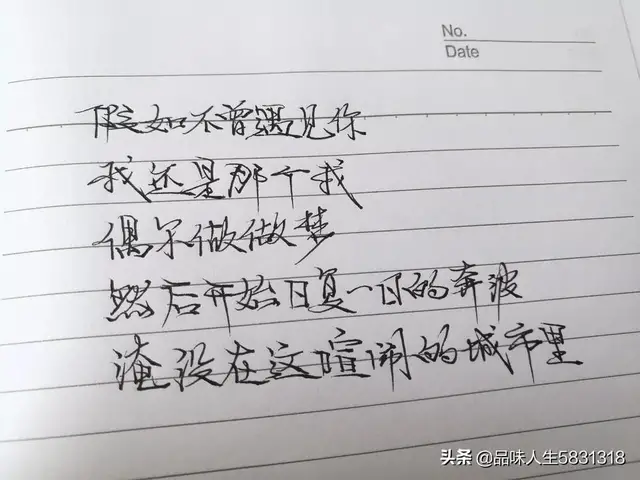 No.
Date
假如不曾遇见你
我还是那个我
偶尔做做梦
然后开始日复一日的奔波
淹没在这喧闹的城市里
头条 @品味人生5831318